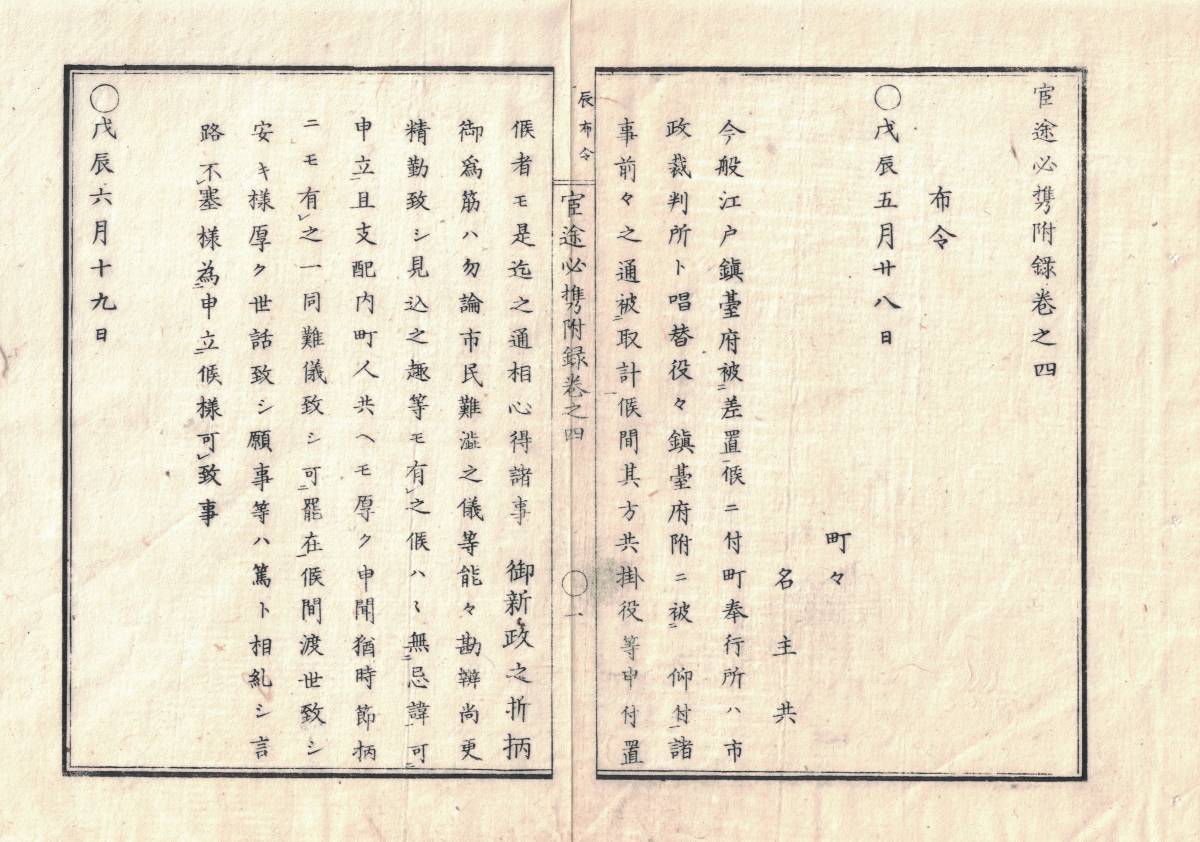 官途必携附録巻之四
布令
○戊辰五月廿八日
町々
名主共
今般江戸鎮臺府被㆓差置㆒候ニ付町奉行所ハ市
政裁判所ト唱替役々鎮臺府附ニ被㆓　仰付㆒諸
事前々之通被㆓取計候間其方共掛役等申付置
辰布令
官途必携附録巻之四
○一
候者モ是迄之通相心得諸事　御新政之折柄
御為筋ハ勿論市民難澁之儀等能々勘辨尚更
精勤致シ見込之趣等モ有㆑之候ハヽ無㆓忌諱㆒可㆓
申立㆒且支配内町人共ヘモ厚ク申聞猶時節柄
ニモ有㆑之一同難儀致シ可㆓罷在㆒候間渡世致シ
安キ様厚ク世話致シ願事等ハ篤ト相糺シ言
路不㆑塞様為㆓申立㆒候様可㆑致事
○戊辰六月十九日